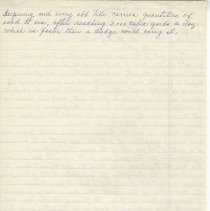 deepening and every ebb tide carries quantities of
sand to sea, often reaching 3000 cubic yards a day
which is faster than a dredge could carry it.